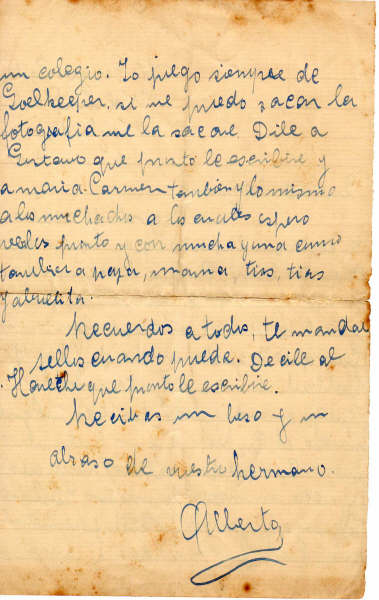 un colegio. Yo juego siempre de
Goelkeeper, si me puedo sacar la
fotografia me la sacare Dile a
Gustavo que pronto le escribire y
a maria Carmen tambien y lo mismo
a los muchachos a los cuales espero
verles pronto y con mucha
tambien a papa, mama tios, tias
y abuelita.
Recuerdos a todos, te mandal
sellos cuando puede. Decile al
que pronto le escribire.
Recibes un beso y un
abraso de vuestro hermano.
Alberto